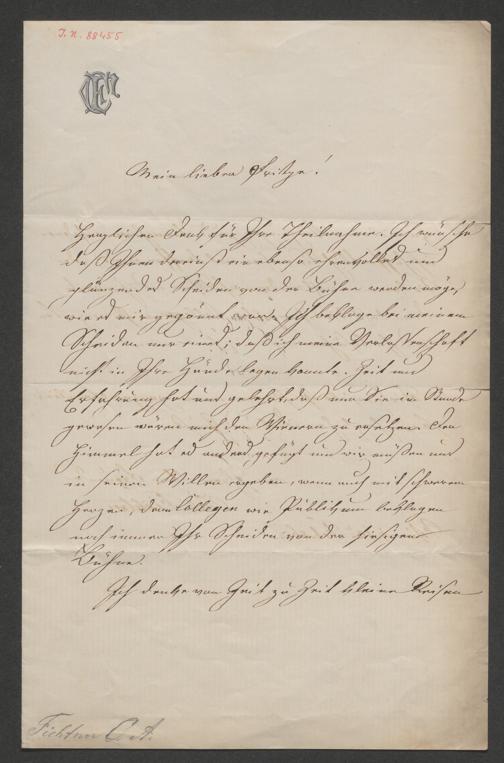 I. N. 88455
Mein lieber Fritze!
Herzlichen Dank für Ihre Theilnahme. Ich wünsche
daß Ihnen dereinst ein ebenso ehrenvolles und
glänzendes Scheiden von der Bühne werden möge,
wie es mir gegönnt war. Ich beklage bei meinem
Scheiden nur eines; daß ich meine Verlassenschaft
nicht in Ihre Hände legen konnte. Zeit und
Erfahrung hat uns gelehrt, daß nur Sie im Stande
gewesen wären mich den Wienern zu ersetzen. Der
Himmel hat es anders gefügt und wir müßen uns
in seinen Willen ergeben, wenn auch mit schwerem
Herzen, denn Collegen wie Publikum beklagen
noch immer Ihr Scheiden von der hiesigen
Bühne.
Ich denke von Zeit zu Zeit kleine Reisen
Fichtner C. A.